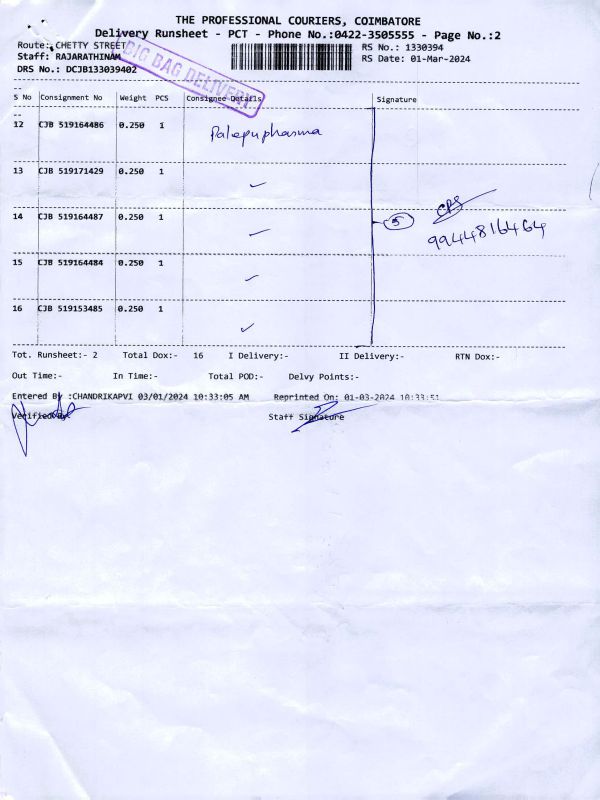 THE PROFESSIONAL COURIERS, COIMBATORE
Delivery Runsheet - PCT - Phone No.:0422-3505555 - Page No.:2
Route: CHETTY STREET
Staff: RAJARATHINAM
DRS No.: DCJB133039402
BIG BAG DELIVERY
RS No.: 1330394
RS Date: 01-Mar-2024
S No Consignment No Weight PCS Consignee Details Signature
12 CJB 519164486 0.250 1 Palepupharma
13 CJB 519171429 0.250 1 ✓
14 CJB 519164487 0.250 1 ✓
5
9944816464
15 CJB 519164484 0.250 1 ✓
16 CJB 519153485 0.250 1 ✓
Tot. Runsheet:- 2 Total Dox:- 16 I Delivery:- II Delivery:- RTN Dox:-
Out Time:- In Time:- Total POD:- Delvy Points:-
Entered By :CHANDRIKAPVI 03/01/2024 10:33:05 AM Reprinted On: 01-03-2024 10:33:51
Verified By Staff Signature